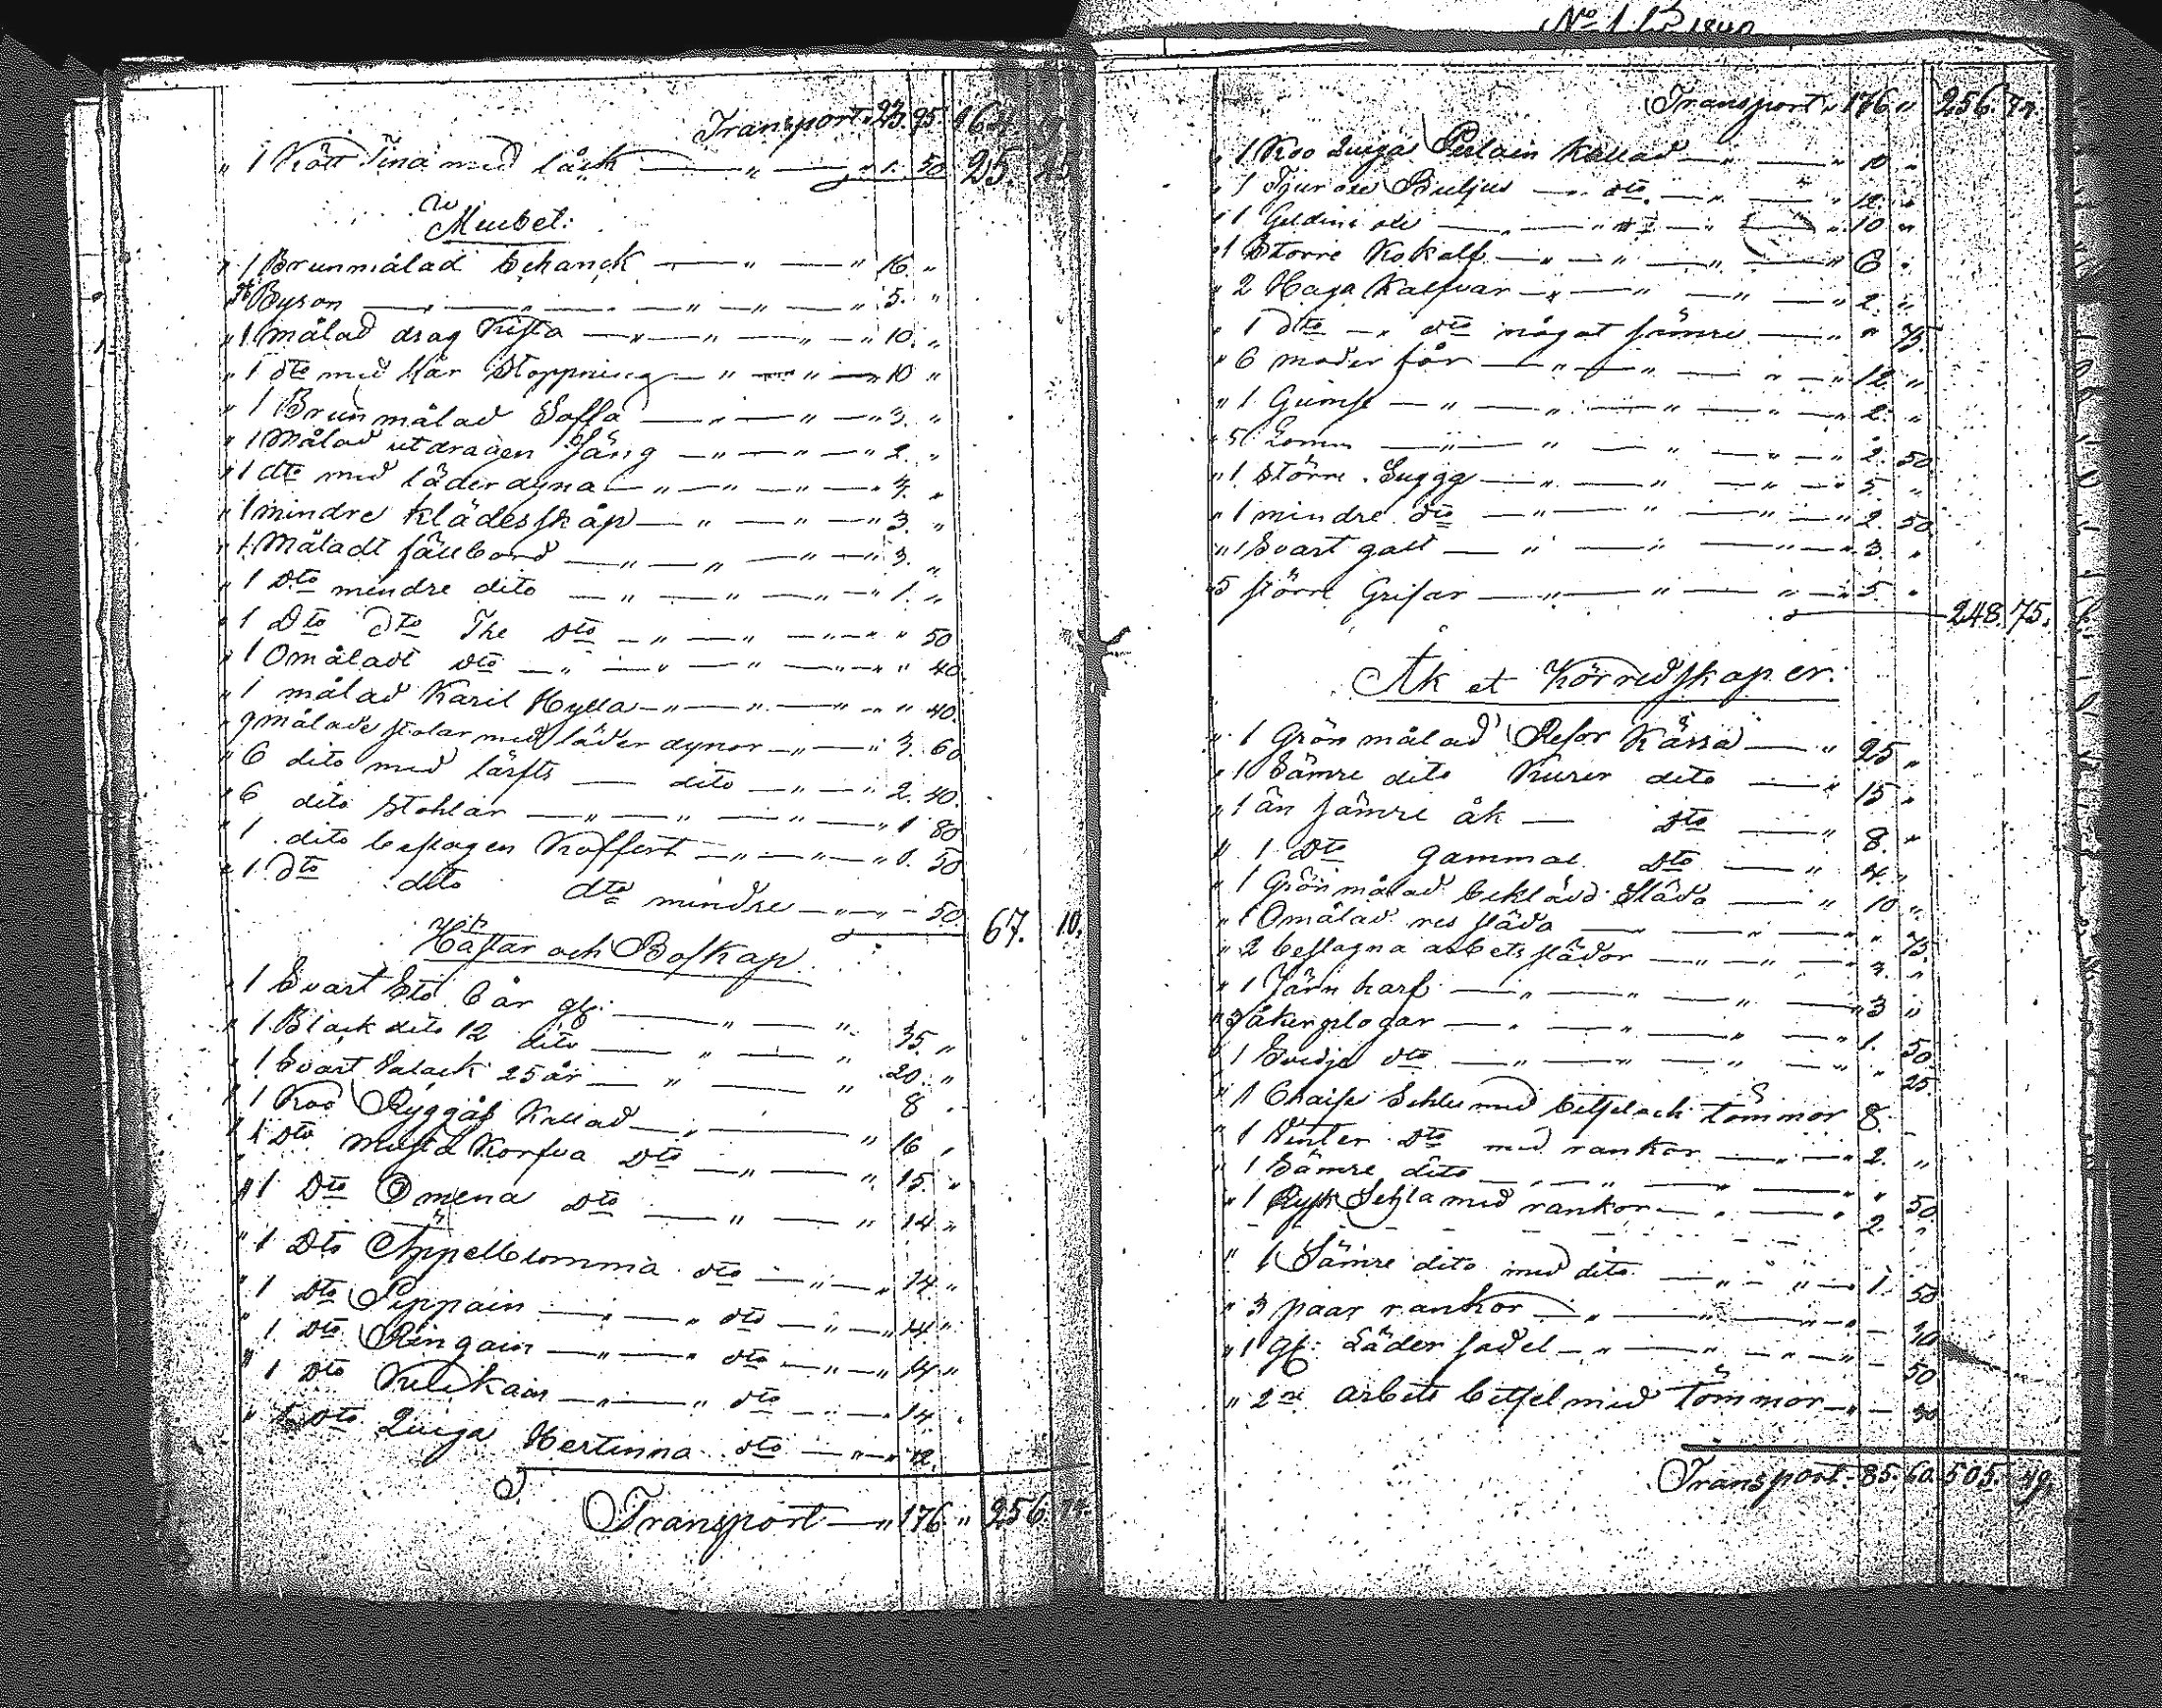 Transport " 23. 95. 164.
" 1 Kött Tina med låck — " — " 1. 50 25.
Meubel:
" 1 Brunmålad Schanck — " — " 16. "
Byron — " — " — " — " 5. "
" 1 målad drag Kista — " — " — " — " 10. "
" 1 dto med Hår Stoppning — " — " — " 10 "
" 1 Brun målad Soffa — " — " — " 3. "
" 1 Målad utdragen Säng — " — " — " 2. "
" 1 dto med läderdyna — " — " — " — "
" 1 mindre klädesskåp — " — " — " 3. "
" 1 Måladt fällbord — " — " — " — " 3. "
" 1 Dto mindre dito — " — " — " — " 1. "
" 1 Dto Dto The Dto — " — " — " — " 50
" 1 Omåladt Dto — " — " — " — " 40.
" 1 målad Karil Hylla — " — " — " — " 40.
" 9 målade stolar med läder dynor — " — " 3. 60
" 6 dito med lärfts — dito — " — " 2. 40.
" 6 dito Stohlar — " — " — " — " 1 80
" 1 dito beslagen Koffert — " — " — " 1. 50
" 1 Dto dito dto mindre — " — " — 50. 67. 10.
Hästar och Boskap
" 1 Svart Sto 6 år gl: — " — " 35. "
" 1 Black dito 12 dito — " — " 20. "
" 1 Svart Valack 25 år — " — " 8 "
" 1 Koo Ryggås Kallad — " — " 16 "
" 1 Dto Musta Korfva Dto — " — " 15. "
" 1 Dto Omena Dto — " — " 14 "
" 1 Dto Äppelblomma dto — " — " 14 "
" 1 Dto Pippain — " — " dto — " — " 14 "
" 1 Dto Ringain — " — " dto — " — " 14 "
" 1 Dto Kulikain — " — " dto — " 14 "
" 1 Dto Quiga Hertinna dto — " — " 12.
Transport — " 176 " 256.
No 1
1840
Transport " 176 " 256.
" 1 Koo Quiga Perlain Kallad — " — " 10 "
" 1 Tjur Buljus — " dto — " — " 12. "
" 1 — " — " 10 "
" 1 Större Kokalf — " — " — " — " 6 "
" 2 Haga Kalfvar — " — " — " — " 2. "
" 1 dto — " dto något sämre — " " 75.
" 6 moder får — " — " — " — " 12. "
" 1 Gumse — " — " — " — " — " 2. "
" 5 Lamm — " — " — " — " — " 2. 50
" 1 Större Sugga — " — " — " — " 5. "
" 1 mindre dto — " — " — " — " 2. 50
" 1 Svart galt — " — " — " — " 3. "
" 5 större Grisar — " — " — " — " 5. "
248. 75.
Åk et Körredskaper.
" 1 Grön målad Resor Kärra — " 25 "
" 1 Sämre dito Kurer dito — " 15 "
" 1 än sämre åk — Dto — " 8. "
" 1 Dto gammal Dto — " 4. "
" 1 Grön målad beklädd Släda — " 10 "
" 1 Omålad res släda — " — " — " " 75.
" 2 beslagna arbets slädor — " — " — " "
" 1 Järn harf — " — " — " — " 3 "
" 3 åkerplogar — " — " — " — " 1. 50
" 1 Svedje dto — " — " — " — " " 25.
" 1 Chaise Sehle med betsel och tömmor 8. —
" 1 Winter Dto med rankor — " — " 2. "
" 1 Sämre dito — " — " — " — " " 50
" 1 Rysk Sehla med rankor — " — " 2. "
" 1 Sämre dito med dito — " — " — " 1. 50
" 3 paar rankor — " — " — " — 30
" 1 gl: Läder sadel — " — " — " — 50
" 2ne arbets betsel med tömmor — " — 30
Transport 85. 60. 505. 49.